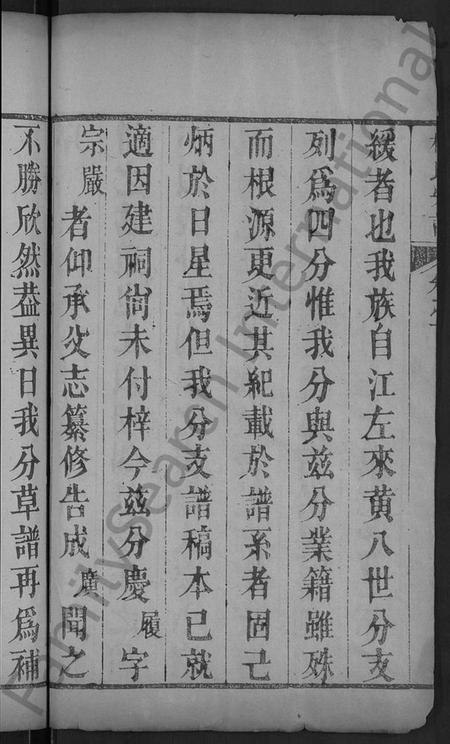 緩者也我族自江左來黃八世分支
列爲四分惟我分與茲分業籍雖殊
而根源更近其紀載於譜系者固已
炳於日星焉但我分支譜稿本已就
適因建祠尙未付梓今茲分慶履字
宗嚴者仰承父志纂修告成廣聞之
不勝欣然葢異日我分草譜再爲補
FamilySearch International